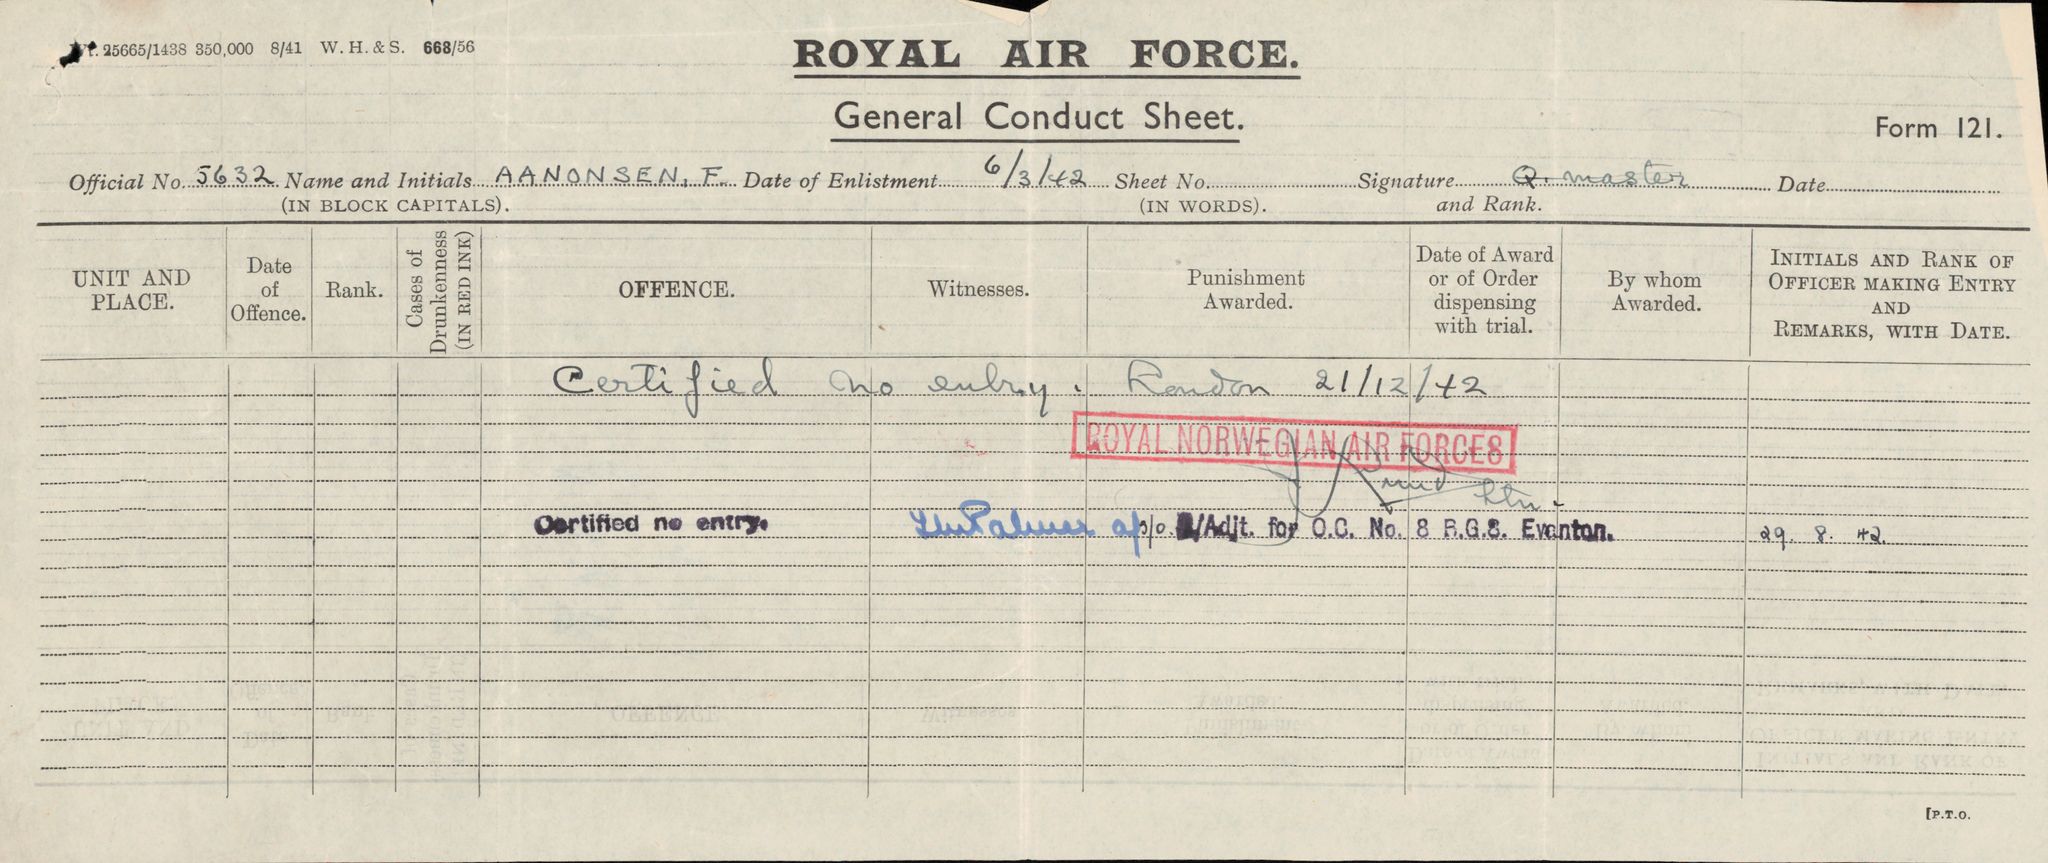 25665/1438 350,000 8/41 W. H. & S. 668/56
ROYAL AIR FORCE.
General Conduct Sheet.
Form 121.
Official No. 5632 Name and Initials AANONSEN, F. Date of Enlistment 6/3/42 Sheet No. Signature Q. master Date
(IN BLOCK CAPITALS). (IN WORDS). and Rank.
UNIT AND PLACE.
Date of Offence.
Rank.
Cases of Drunkenness (IN RED INK)
OFFENCE.
Witnesses.
Punishment Awarded.
Date of Award or of Order dispensing with trial.
By whom Awarded.
INITIALS AND RANK OF OFFICER MAKING ENTRY AND REMARKS, WITH DATE.
Certified no entry. London 21/12/42
ROYAL NORWEGIAN AIR FORCES
Certified no entry. /Adjt. for O.C. No. 8 A.G.S. Evanton. 29. 8. 42.
[P.T.O.